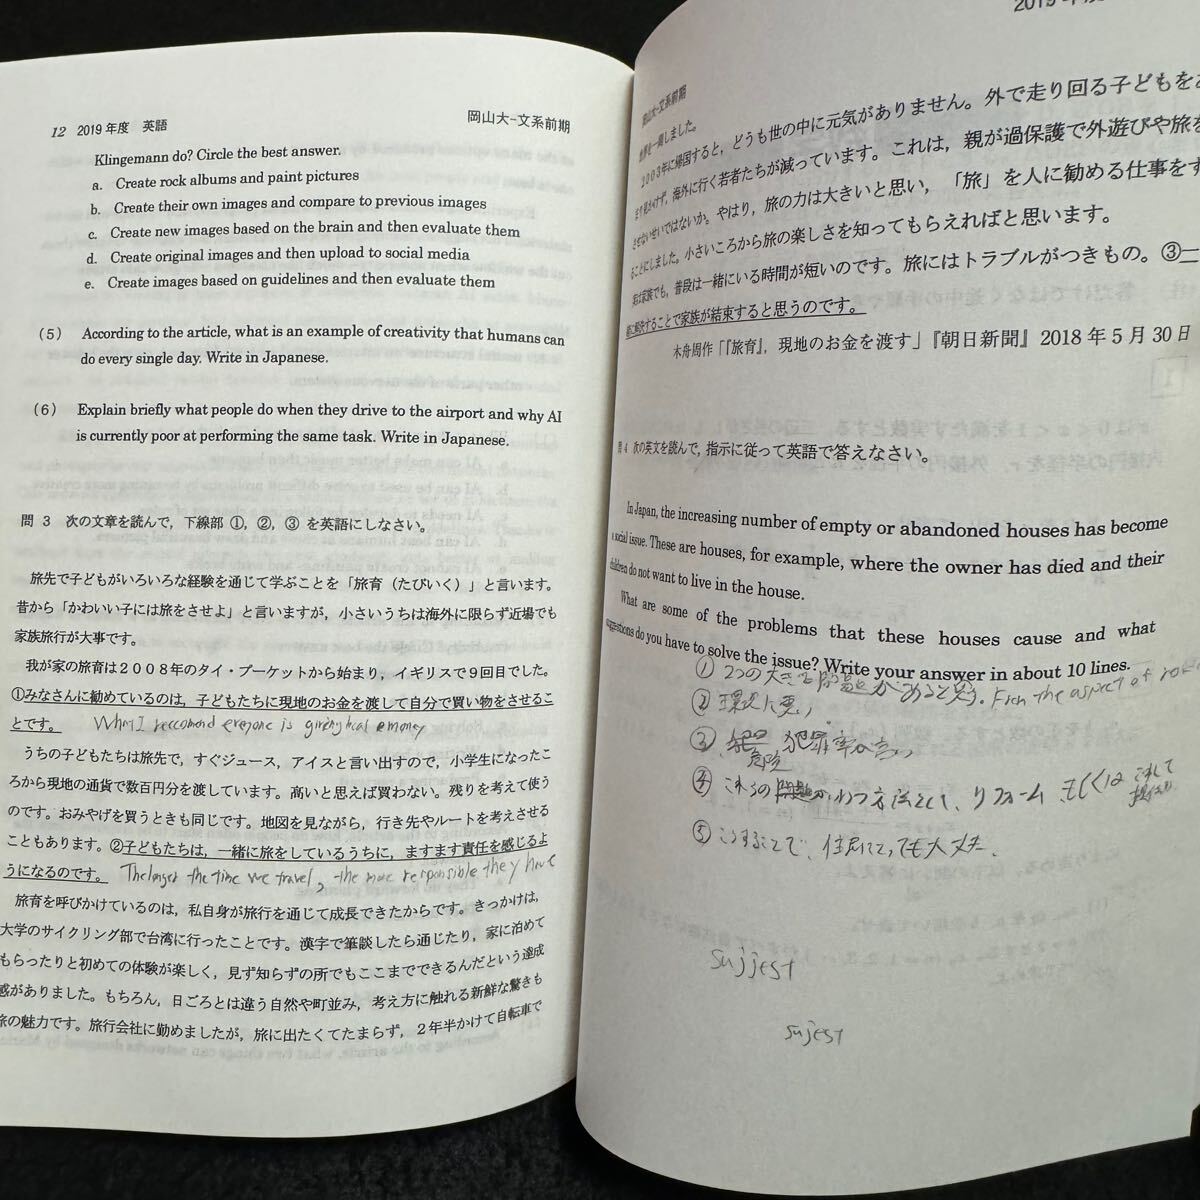 12 2019年度 英語
岡山大-文系前期
Klingemann do? Circle the best answer.
a. Create rock albums and paint pictures
b. Create their own images and compare to previous images
c. Create new images based on the brain and then evaluate them
d. Create original images and then upload to social media
e. Create images based on guidelines and then evaluate them
(5) According to the article, what is an example of creativity that humans can
do every single day. Write in Japanese.
(6) Explain briefly what people do when they drive to the airport and why AI
is currently poor at performing the same task. Write in Japanese.
問 3 次の文章を読んで，下線部 ①，②，③ を英語にしなさい。
旅先で子どもがいろいろな経験を通じて学ぶことを「旅育（たびいく）」と言います。
昔から「かわいい子には旅をさせよ」と言いますが，小さいうちは海外に限らず近場でも
家族旅行が大事です。
我が家の旅育は２００８年のタイ・プーケットから始まり，イギリスで９回目でした。
①みなさんに勧めているのは，子どもたちに現地のお金を渡して自分で買い物をさせるこ
とです。 What I reccomend everyone is giving local emoney
うちの子どもたちは旅先で，すぐジュース，アイスと言い出すので，小学生になったこ
ろから現地の通貨で数百円分を渡しています。高いと思えば買わない。残りを考えて使う
のです。おみやげを買うときも同じです。地図を見ながら，行き先やルートを考えさせる
こともあります。②子どもたちは，一緒に旅をしているうちに，ますます責任を感じるよ
うになるのです。 The longer the time we travel, the more responsible they have
旅育を呼びかけているのは，私自身が旅行を通じて成長できたからです。きっかけは，
大学のサイクリング部で台湾に行ったことです。漢字で筆談したら通じたり，家に泊めて
もらったりと初めての体験が楽しく，見ず知らずの所でもここまでできるんだという達成
感がありました。もちろん，日ごろとは違う自然や町並み，考え方に触れる新鮮な驚きも
旅の魅力です。旅行会社に勤めましたが，旅に出たくてたまらず，２年半かけて自転車で
岡山大-文系前期
世界を一周しました。
２００３年に帰国すると，どうも世の中に元気がありません。外で走り回る子どもをあ
まり見かけず，海外に行く若者たちが減っています。これは，親が過保護で外遊びや旅を
させないせいではないか。やはり，旅の力は大きいと思い，「旅」を人に勧める仕事をす
ることにしました。小さいころから旅の楽しさを知ってもらえればと思います。
実は家族でも，普段は一緒にいる時間が短いのです。旅にはトラブルがつきもの。③一
緒に解決することで家族が結束すると思うのです。
木舟周作「『旅育』，現地のお金を渡す」『朝日新聞』2018 年 5 月 30 日
問 4 次の英文を読んで，指示に従って英語で答えなさい。
In Japan, the increasing number of empty or abandoned houses has become
a social issue. These are houses, for example, where the owner has died and their
children do not want to live in the house.
What are some of the problems that these houses cause and what
suggestions do you have to solve the issue? Write your answer in about 10 lines.
① 2つの大きな問題があると思う. From the aspect of
② 環境に悪い
③ 犯罪率が高い
危険
④ これらの問題
リフォーム もしくは
⑤ こうすることで, 住民にとっても大丈夫.
sujjest
sujest